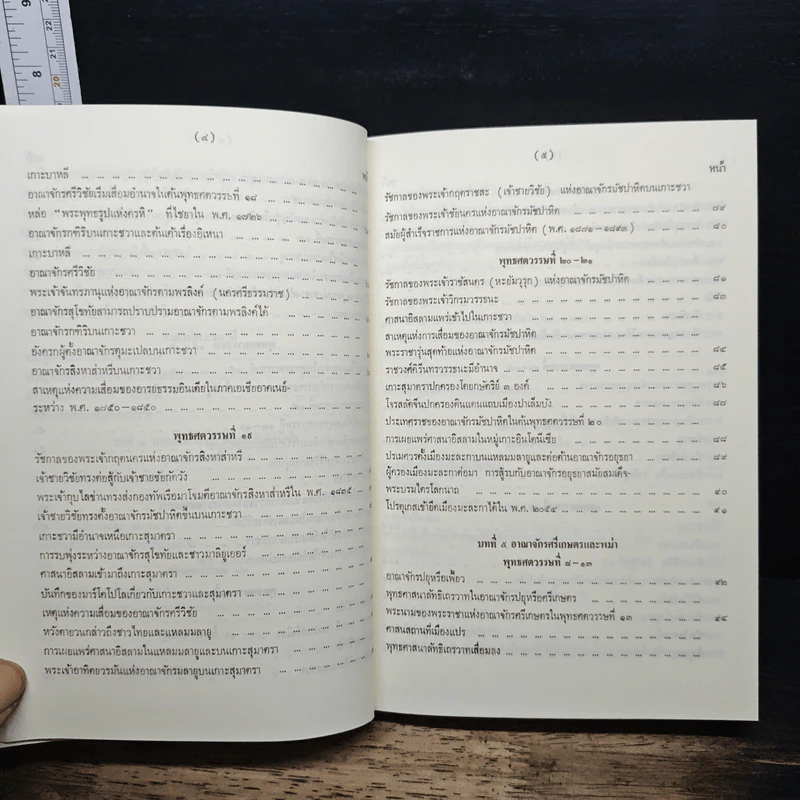 (๔)
เกาะบาหลี ... ... ... ... ... ... ... ... ... ...
อาณาจักรศรีวิชัยเริ่มเสื่อมอำนาจในต้นพุทธศตวรรษที่ ๑๘ ... ...
หล่อ “พระพุทธรูปแห่งครหิ” ที่ไชยาใน พ.ศ. ๑๗๒๖ ... ... ...
อาณาจักรกฑิริบนเกาะชวาและต้นเค้าเรื่องอิเหนา ... ... ...
เกาะบาหลี ... ... ... ... ... ... ... ... ... ...
อาณาจักรศรีวิชัย ... ... ... ... ... ... ... ... ...
พระเจ้าจันทรภานุแห่งอาณาจักรตามพรลิงค์ (นครศรีธรรมราช) ...
อาณาจักรสุโขทัยสามารถปราบปรามอาณาจักรตามพรลิงค์ได้ ... ...
อาณาจักรกฑิริบนเกาะชวา ... ... ... ... ... ...
อังครกผู้ตั้งอาณาจักรตุมะเปลบนเกาะชวา ... ... ... ...
อาณาจักรสิงหาส่าหรีบนเกาะชวา ... ... ... ... ...
สาเหตุแห่งความเสื่อมของอารยธรรมอินเดียในภาคเอเชียอาคเนย์-
ระหว่าง พ.ศ. ๑๗๕๐–๑๘๕๐ ... ... ... ... ... ...
พุทธศตวรรษที่ ๑๙
รัชกาลของพระเจ้ากฤตนครแห่งอาณาจักรสิงหาส่าหรี ... ... ...
เจ้าชายวิชัยทรงต่อสู้กับเจ้าชายชัยกัตวัง ... ... ... ...
พระเจ้ากุบไลข่านทรงส่งกองทัพเรือมาโจมตีอาณาจักรสิงหาส่าหรีใน พ.ศ. ๑๘๓๕
เจ้าชายวิชัยทรงตั้งอาณาจักรมัชปาหิตขึ้นบนเกาะชวา ... ... ...
เกาะชวามีอำนาจเหนือเกาะสุมาตรา ... ... ... ... ...
การรบพุ่งระหว่างอาณาจักรสุโขทัยและชาวมาลิยูเออร์ ... ... ...
ศาสนาอิสลามเข้ามาถึงเกาะสุมาตรา ... ... ... ... ...
บันทึกของมาร์โคโปโลเกี่ยวกับเกาะชวาและสุมาตรา ... ... ...
เหตุแห่งความเสื่อมของอาณาจักรศรีวิชัย ... ... ... ...
หวังตายวนกล่าวถึงชาวไทยและแหลมมลายู ... ... ... ...
การเผยแพร่ศาสนาอิสลามในแหลมมลายูและบนเกาะสุมาตรา ... ...
พระเจ้าอาทิตยวรมันแห่งอาณาจักรมลายูบนเกาะสุมาตรา ... ... ...
(๕)
หน้า
รัชกาลของพระเจ้ากฤตราชสะ (เจ้าชายวิชัย) แห่งอาณาจักรมัชปาหิตบนเกาะชวา
รัชกาลของพระเจ้าชัยนครแห่งอาณาจักรมัชปาหิต ... ... ... ๗๙
สมัยผู้สำเร็จราชการแห่งอาณาจักรมัชปาหิต (พ.ศ. ๑๘๗๑–๑๘๙๓) ... ๘๐
พุทธศตวรรษที่ ๒๐–๒๑
รัชกาลของพระเจ้าราชัสนคร (หะยัมวุรุก) แห่งอาณาจักรมัชปาหิต ... ๘๑
รัชกาลของพระเจ้าวิกรมวรรธนะ ... ... ... ... ... ๘๓
ศาสนาอิสลามแพร่เข้าไปในเกาะชวา ... ... ... ... ...
สาเหตุแห่งการเสื่อมของอาณาจักรมัชปาหิต ... ... ... ...
พระราชารุ่นสุดท้ายแห่งอาณาจักรมัชปาหิต ... ... ... ... ๘๔
ราชวงศ์คิรีนทรวรรธนะมีอำนาจ ... ... ... ... ... ๘๕
เกาะสุมาตราปกครองโดยกษัตริย์ ๓ องค์ ... ... ... ... ๘๖
โจรสลัดจีนปกครองดินแดนแถบเมืองปาเล็มบัง ... ... ... ๘๗
ประเทศราชของอาณาจักรมัชปาหิตในต้นพุทธศตวรรษที่ ๒๐ ... ...
การเผยแพร่ศาสนาอิสลามในหมู่เกาะอินโดนีเซีย ... ... ... ๘๘
ปรเมศวรตั้งเมืองมะละกาบนแหลมมลายูและต่อต้านอาณาจักรอยุธยา ... ๘๙
ผู้ครองเมืองมะละกาต่อมา การสู้รบกับอาณาจักรอยุธยาสมัยสมเด็จ-
พระบรมไตรโลกนาถ ... ... ... ... ... ... ... ๙๐
โปรตุเกสเข้ายึดเมืองมะละกาได้ใน พ.ศ. ๒๐๕๔ ... ... ... ๙๑
บทที่ ๕ อาณาจักรศรีเกษตรและพม่า
พุทธศตวรรษที่ ๘–๑๓
อาณาจักรปยุหรือเพียว ... ... ... ... ... ... ๙๒
พุทธศาสนาลัทธิเถรวาทในอาณาจักรปยุหรือศรีเกษตร ... ... ...
พระนามของพระราชาแห่งอาณาจักรศรีเกษตรในพุทธศตวรรษที่ ๑๓ ... ๙๔
ศาสนสถานที่เมืองแปร ... ... ... ... ... ... ...
พุทธศาสนาลัทธิเถรวาทเสื่อมลง ... ... ... ... ... ...